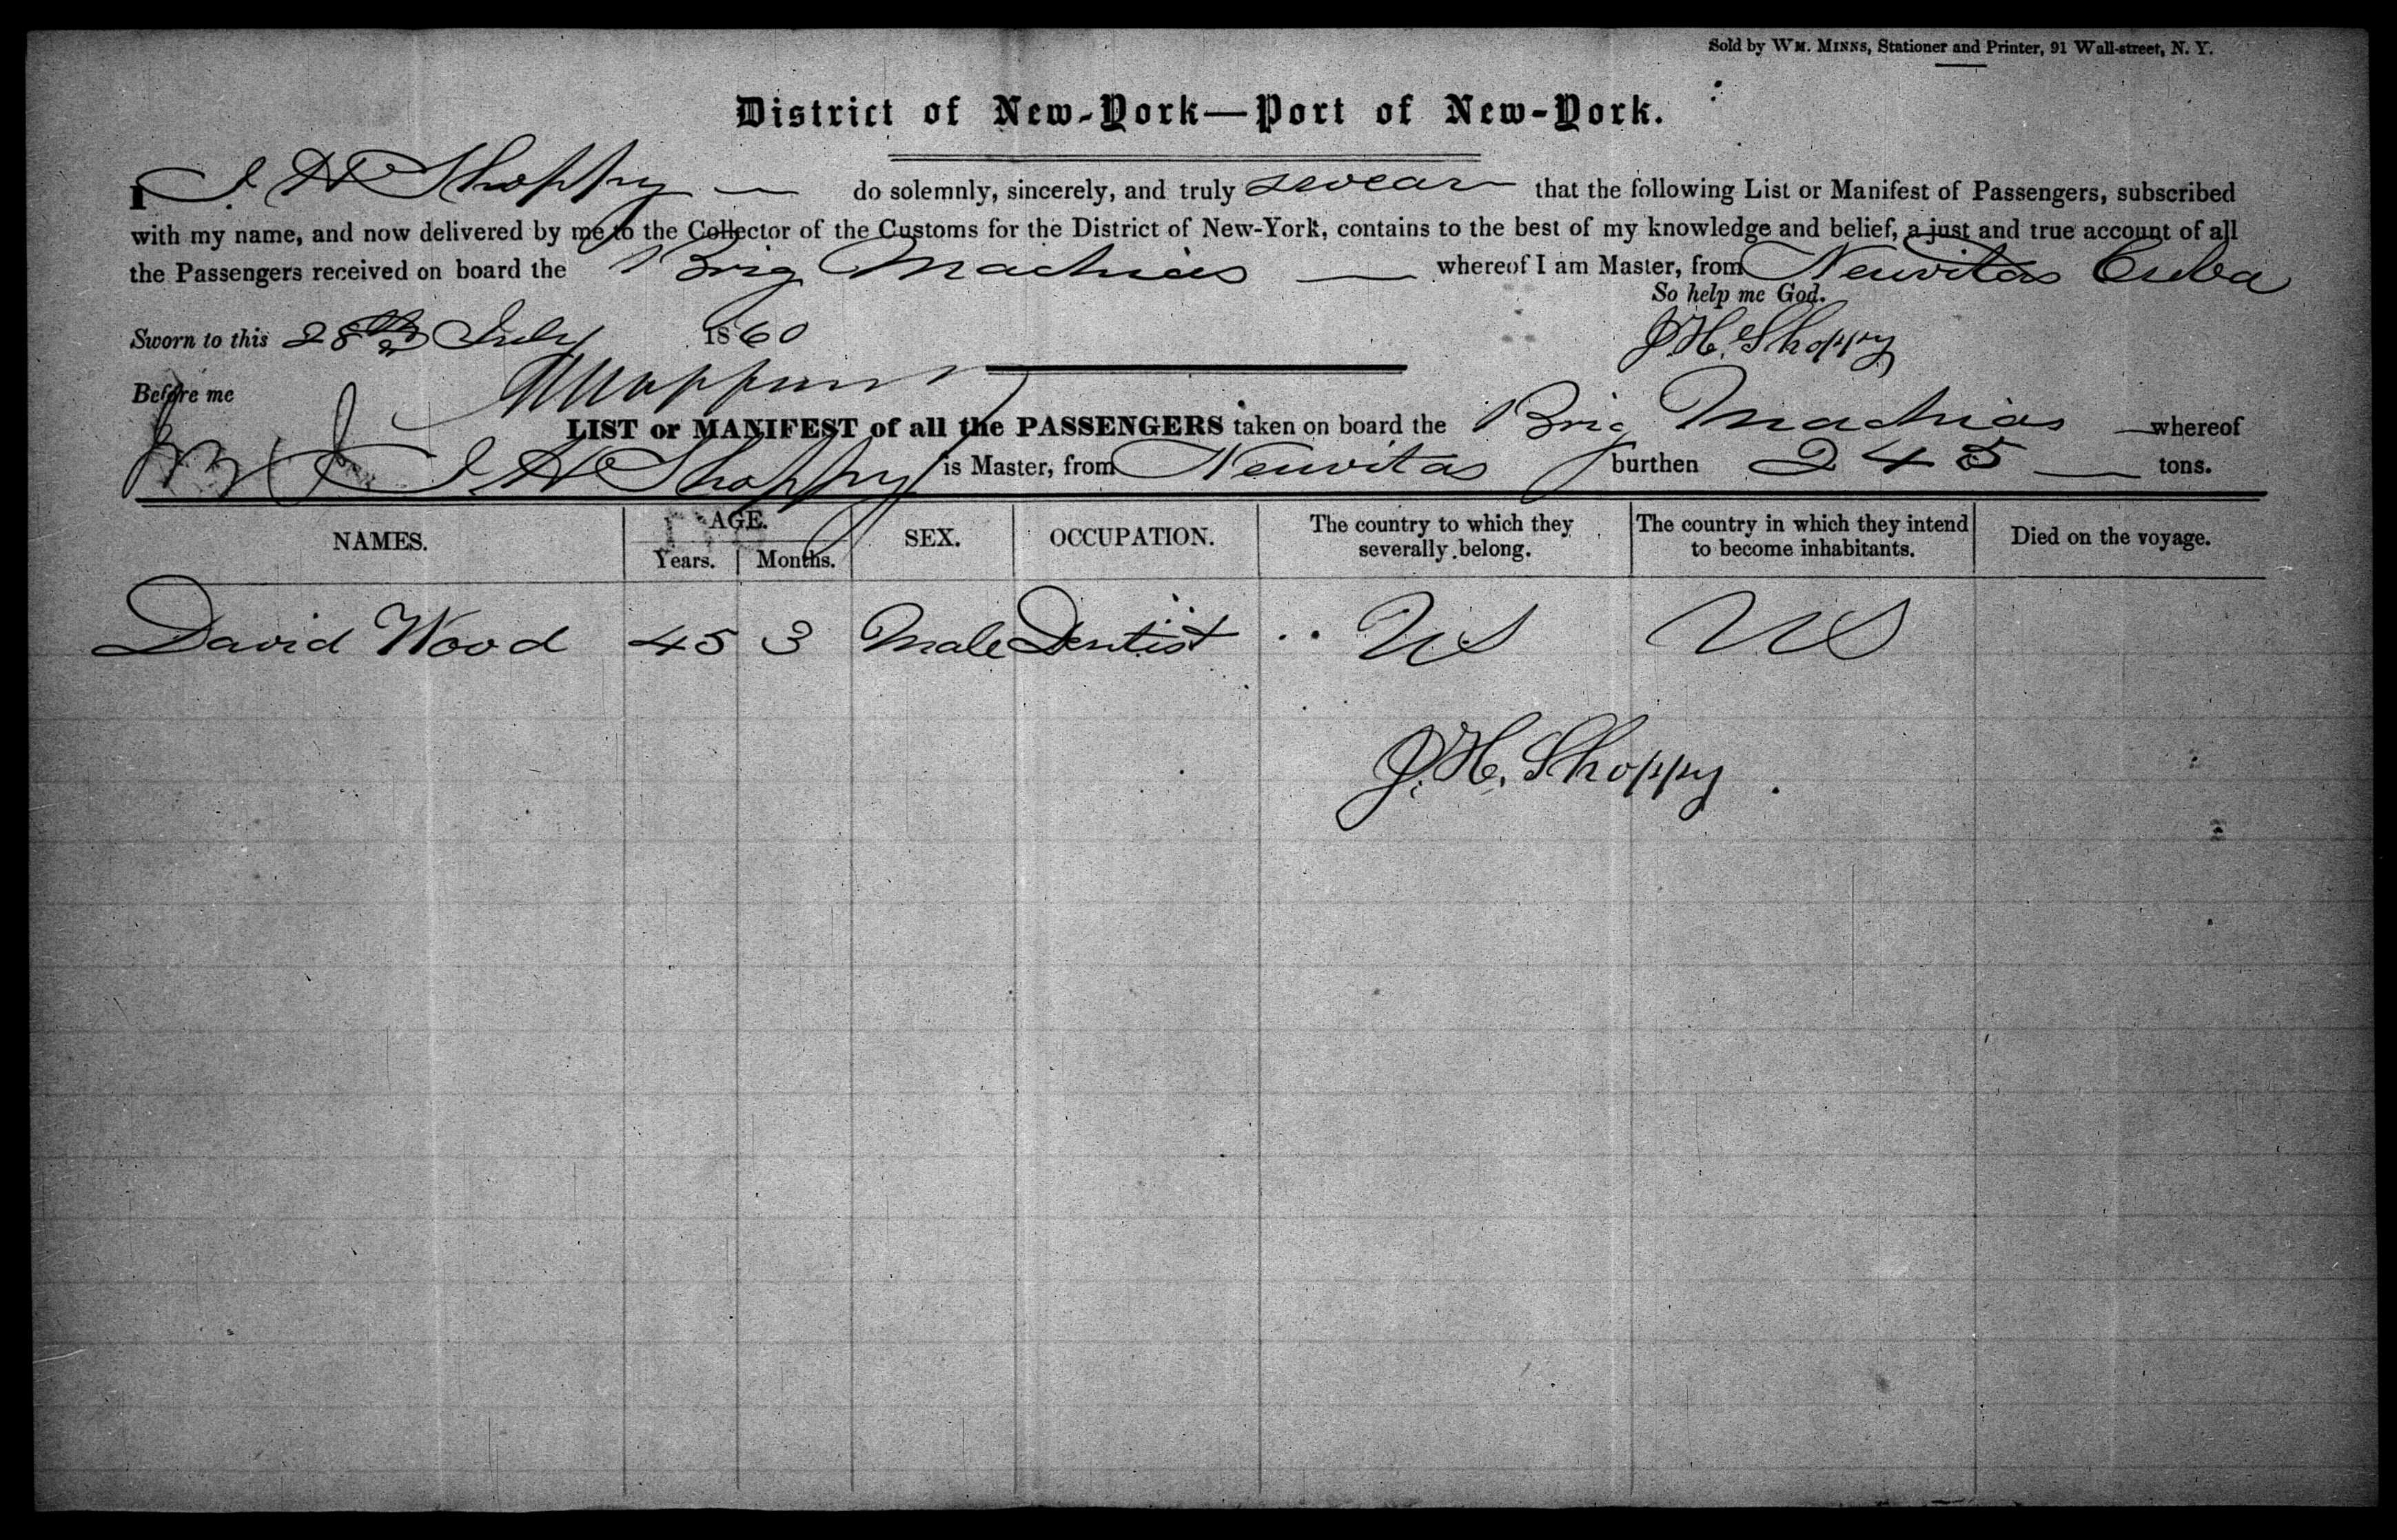 Sold by WM. MINNS, Stationer and Printer, 91 Wall-street, N. Y.
District of New-York—Port of New-York.
I J. H Shoppy — do solemnly, sincerely, and truly swear that the following List or Manifest of Passengers, subscribed
with my name, and now delivered by me to the Collector of the Customs for the District of New-York, contains to the best of my knowledge and belief, a just and true account of all
the Passengers received on board the Brig Machias — whereof I am Master, from Neuvitas Cuba
So help me God.
Sworn to this 28th July 1860 J. H. Shoppy
Before me
LIST or MANIFEST of all the PASSENGERS taken on board the Brig Machias — whereof
J H Shoppy is Master, from Neuvitas burthen 245 — tons.
NAMES. AGE. SEX. OCCUPATION. The country to which they severally belong. The country in which they intend to become inhabitants. Died on the voyage.
Years. Months.
David Wood 45 3 Male Dentist US US
J. H. Shoppy.